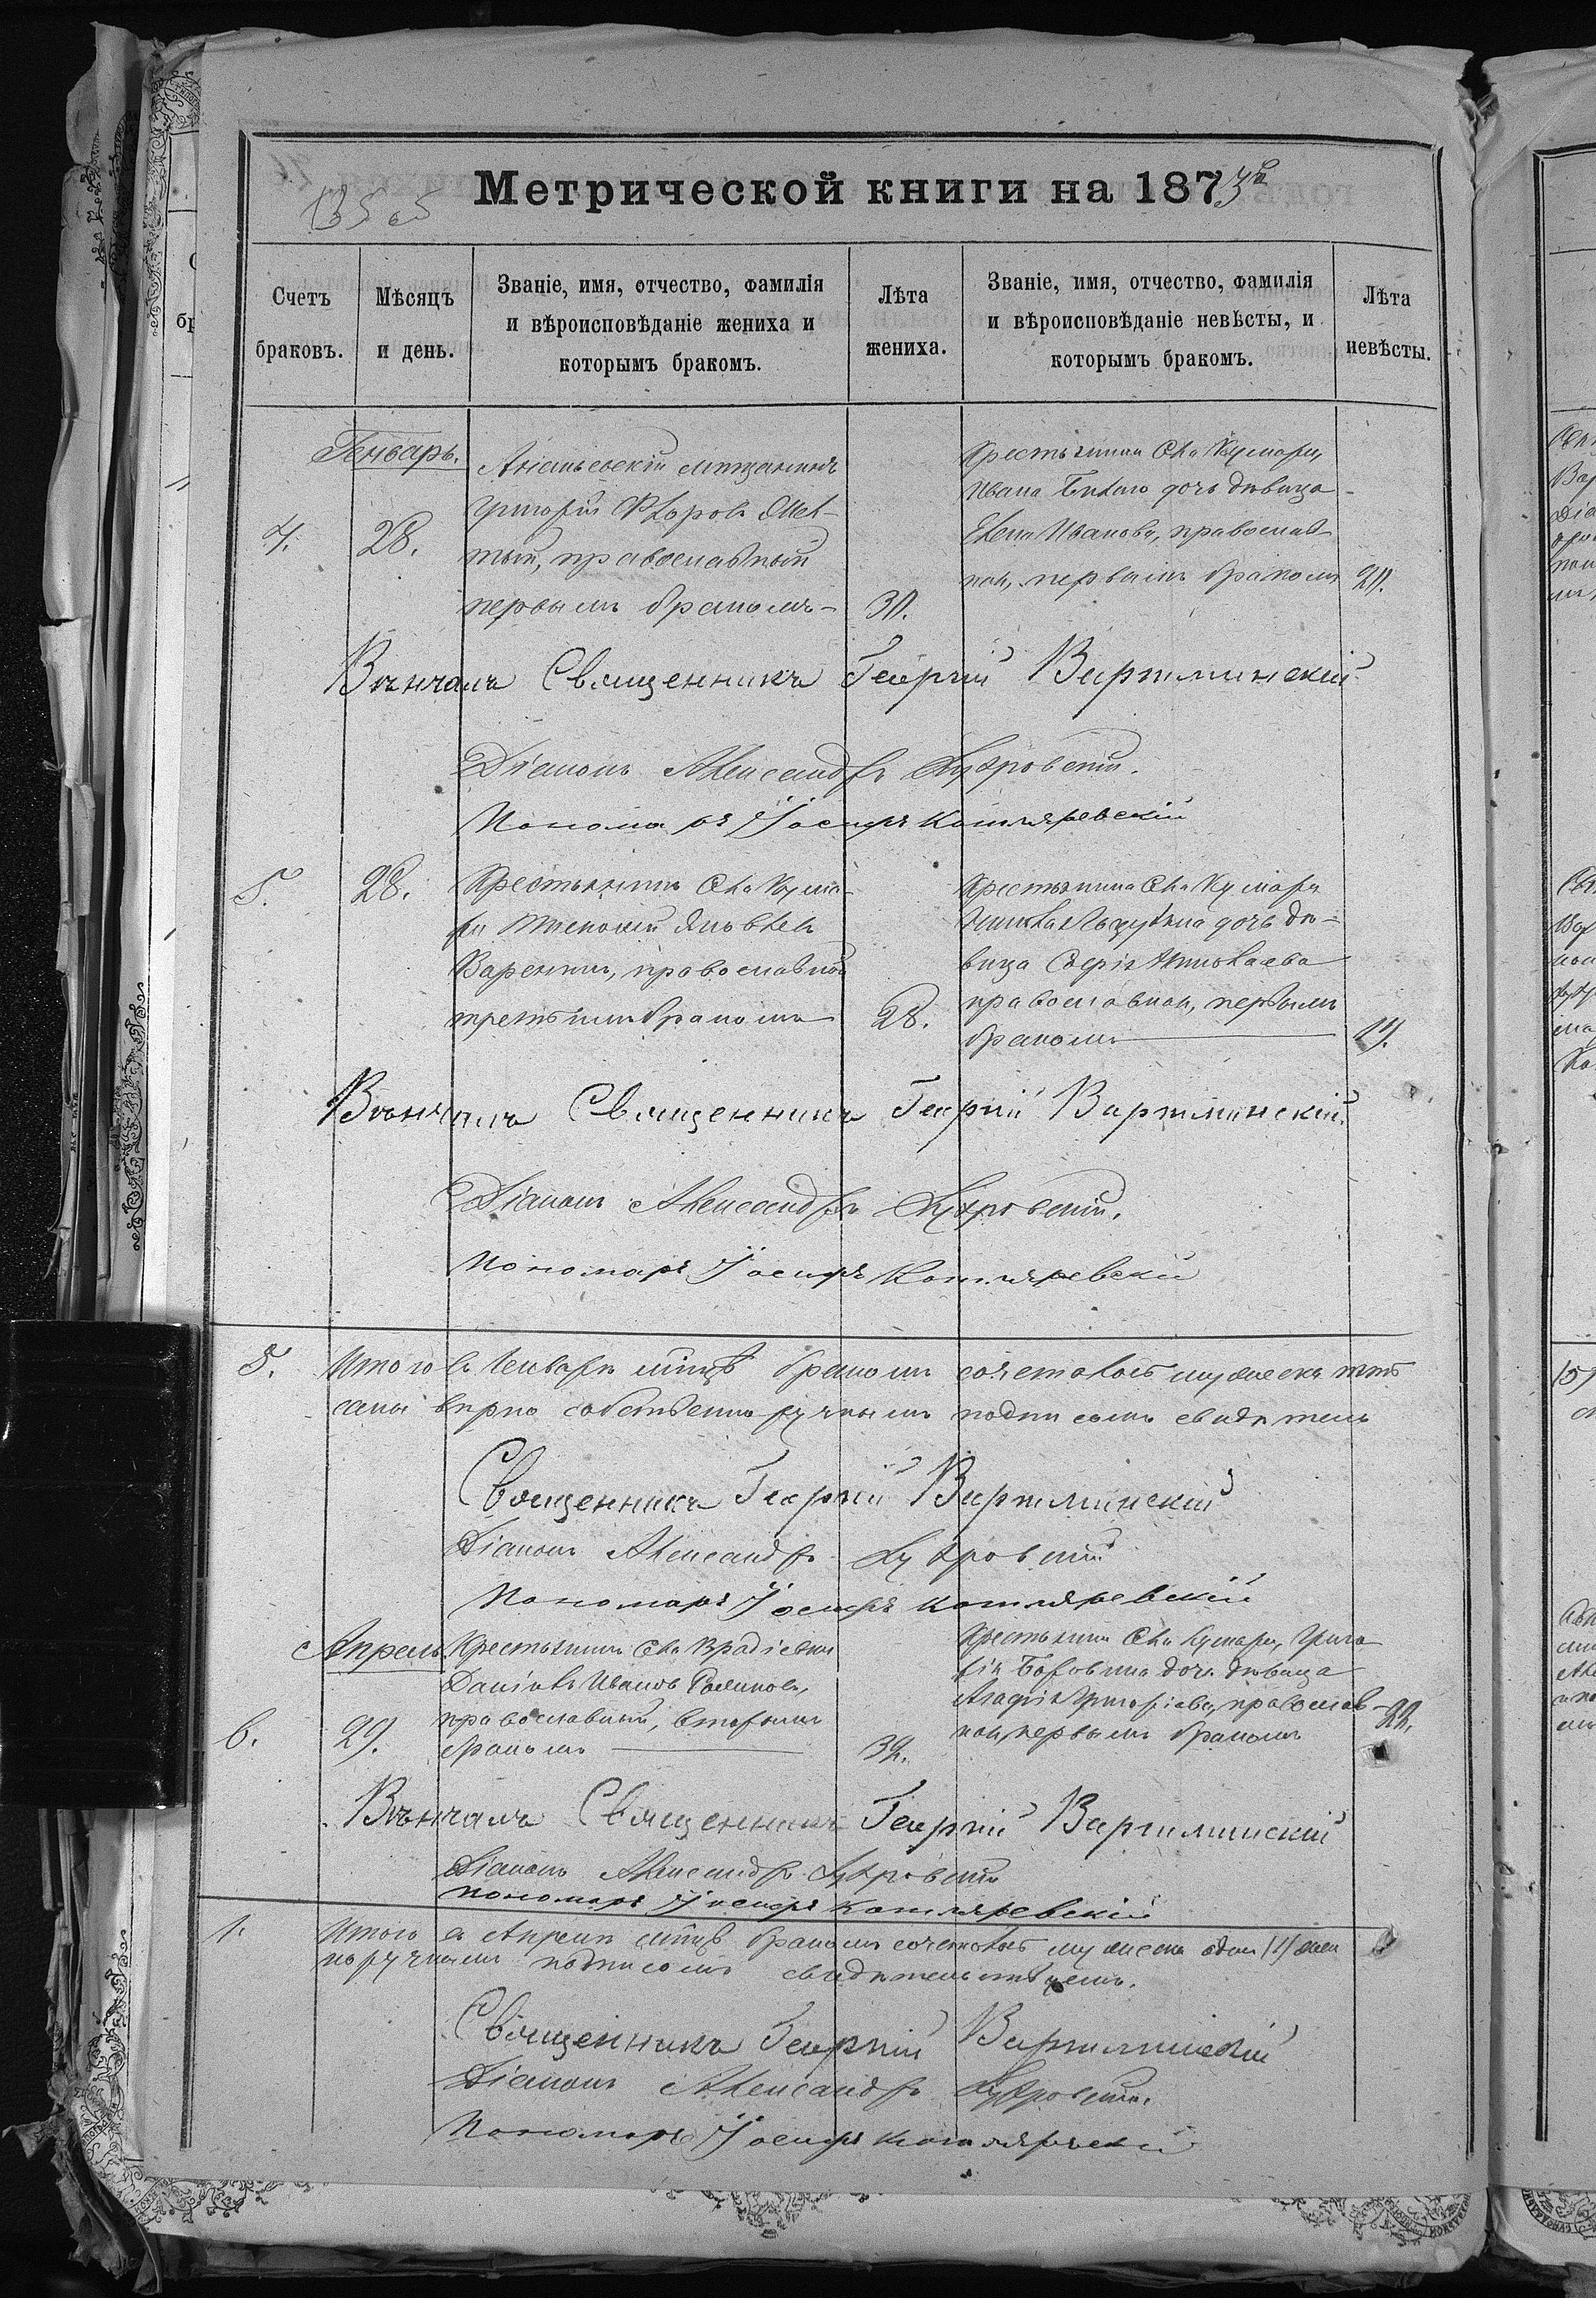 Метрической книги на 1873й
135 об
Счетъ браковъ.
Мѣсяцъ и день.
Званіе, имя, отчество, фамилія и вѣроисповѣданіе жениха и которымъ бракомъ.
Лѣта жениха.
Званіе, имя, отчество, фамилія и вѣроисповѣданіе невѣсты, и которымъ бракомъ.
Лѣта невѣсты.
Генварь.
4.
28.
Ананьевскій мѣщанинъ
Григорій
православный
первымъ бракомъ
30.
Крестьянина Села Кумары
Ивана дочь дѣвица
Елена Иванова, православ-
ная, первымъ бракомъ
20.
Вѣнчалъ Священникъ Георгій Вартминскій
Діаконъ Александръ
Пономарь Іосифъ Котляревскій
5.
28.
Крестьянинъ Села Кума-
ры Яковлевъ
православной
третьимъ бракомъ
28.
Крестьянина Села Кумары
дочь дѣ-
вица Софія Николаева
православная, первымъ
бракомъ
19.
Вѣнчалъ Священникъ Георгій Вартминскій.
Діаконъ Александръ
Пономарь Іосифъ Котляревскій
5.
Итого въ Генварѣ мѣсяцѣ бракомъ сочеталось мужеска пять
вѣрно собственноручнымъ подписомъ свидѣтель
Священникъ Георгій Вартминскій
Діаконъ Александръ
Пономарь Іосифъ Котляревскій
Апрель
6.
29.
Крестьянинъ Села Врадіевки
Даніилъ Ивановъ
православный, вторымъ
бракомъ
32.
Крестьянина Села Кумары, Григо-
рія дочь дѣвица
Агафія Григоріева, православ-
ная, первымъ бракомъ
22.
Вѣнчалъ Священникъ Георгій Вартминскій
Діаконъ Александръ
Пономарь Іосифъ Котляревскій
1.
Итого въ Апрелѣ мѣсяцѣ бракомъ сочеталось мужеска одинъ /1/
норучнымъ подписомъ свидѣтельствуемъ.
Священникъ Георгій Вартминскій
Діаконъ Александръ
Пономарь Іосифъ Котляревскій